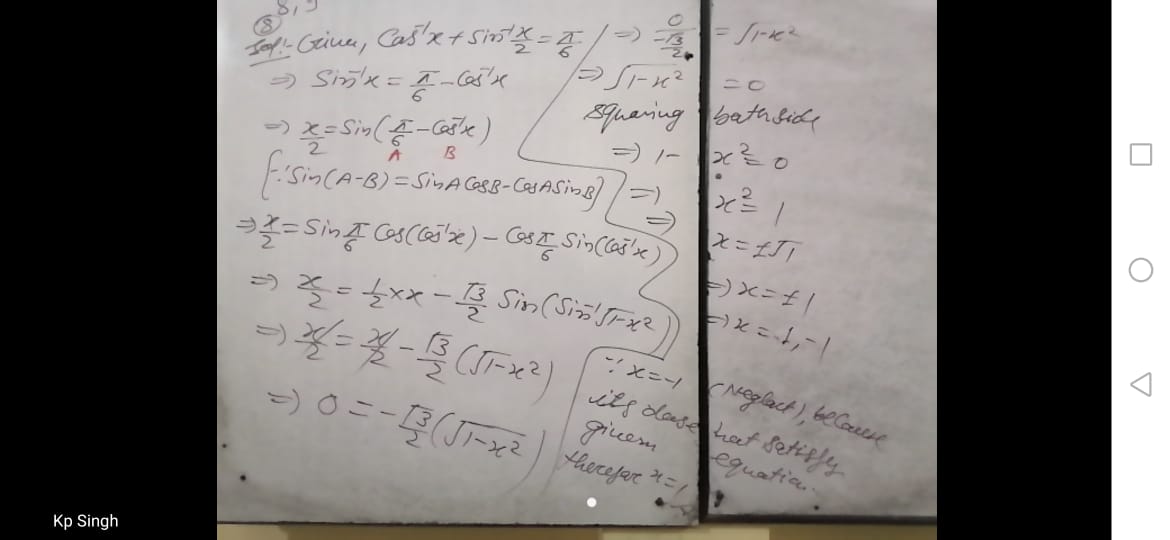 8,9
(8)
Sol:- Given, Cos⁻¹x + Sin⁻¹ x/2 = π/6
=> Sin⁻¹x = π/6 - Cos⁻¹x
=> x/2 = Sin(π/6 - Cos⁻¹x)
A B
[∵ Sin(A-B) = SinA CosB - CosA SinB]
=> x/2 = Sin π/6 Cos(Cos⁻¹x) - Cos π/6 Sin(Cos⁻¹x)
=> x/2 = 1/2 × x - √3/2 Sin(Sin⁻¹√1-x²)
=> x/2 = x/2 - √3/2 (√1-x²)
=> 0 = -√3/2 (√1-x²)
=> 0/-√3/2 = √1-x²
=> √1-x² = 0
squaring bathside
=> 1-x² = 0
=> x² = 1
=> x = ±√1
=> x = ±1
=> x = 1, -1
∵ x = -1 (Neglact), because
its dose not satisfy
given equation.
therefor x = 1
Kp Singh